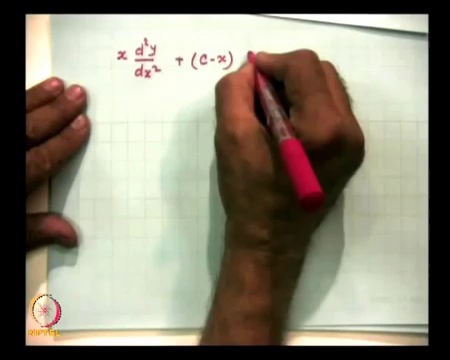 x d²y/dx² + (c-x)
NPTEL